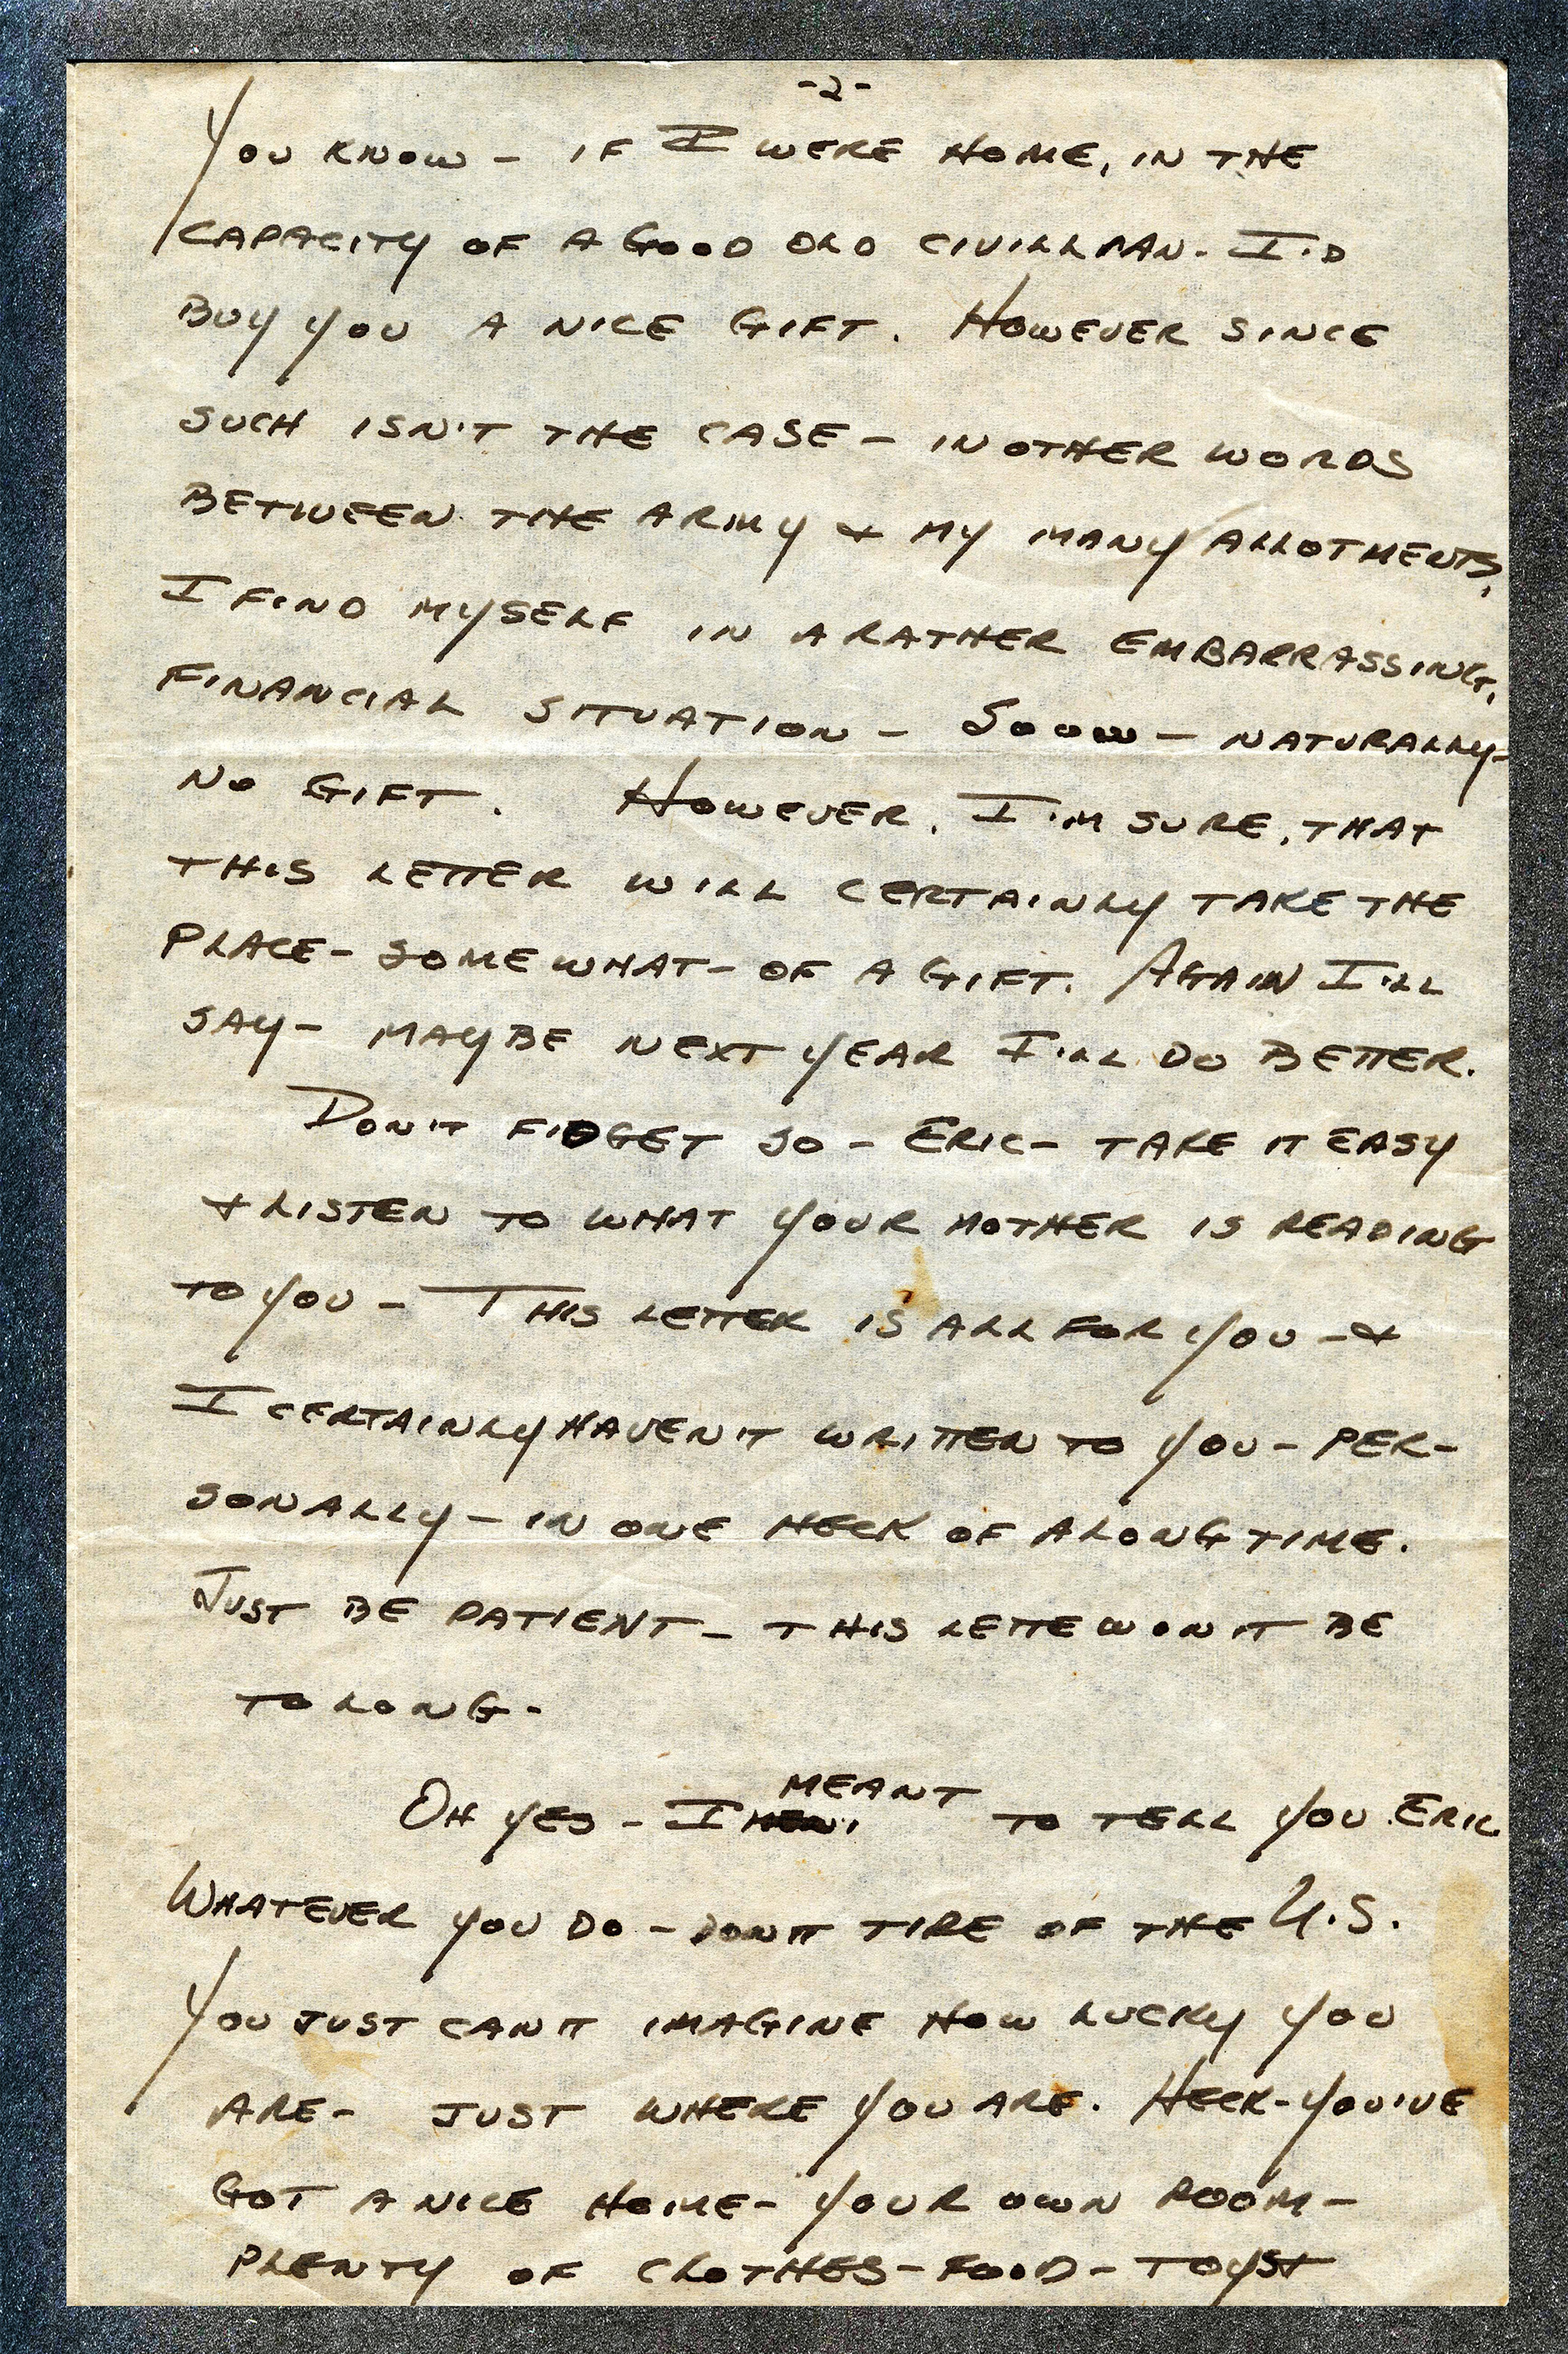 -2-
YOU KNOW - IF I WERE HOME, IN THE
CAPACITY OF A GOOD OLD CIVILLIAN - I'D
BUY YOU A NICE GIFT. HOWEVER SINCE
SUCH ISN'T THE CASE - IN OTHER WORDS
BETWEEN THE ARMY & MY MANY ALLOTMENTS,
I FIND MYSELF IN A RATHER EMBARRASSING,
FINANCIAL SITUATION - SOOOO - NATURALLY -
NO GIFT. HOWEVER, I'M SURE, THAT
THIS LETTER WILL CERTAINLY TAKE THE
PLACE - SOMEWHAT - OF A GIFT. AGAIN I'LL
SAY - MAYBE NEXT YEAR I'LL DO BETTER.
DON'T FIDGET SO - ERIC - TAKE IT EASY
& LISTEN TO WHAT YOUR MOTHER IS READING
TO YOU - THIS LETTER IS ALL FOR YOU - &
I CERTAINLY HAVEN'T WRITTEN TO YOU - PER-
SONALLY - IN ONE HECK OF A LONG TIME.
JUST BE PATIENT - THIS LETTE WON'T BE
TO LONG -
MEANT
OH YES - I TO TELL YOU ERIC
WHATEVER YOU DO - DON'T TIRE OF THE U.S.
YOU JUST CAN'T IMAGINE HOW LUCKY YOU
ARE - JUST WHERE YOU ARE. HECK - YOU'VE
GOT A NICE HOME - YOUR OWN ROOM -
PLENTY OF CLOTHES - FOOD - TOYS &